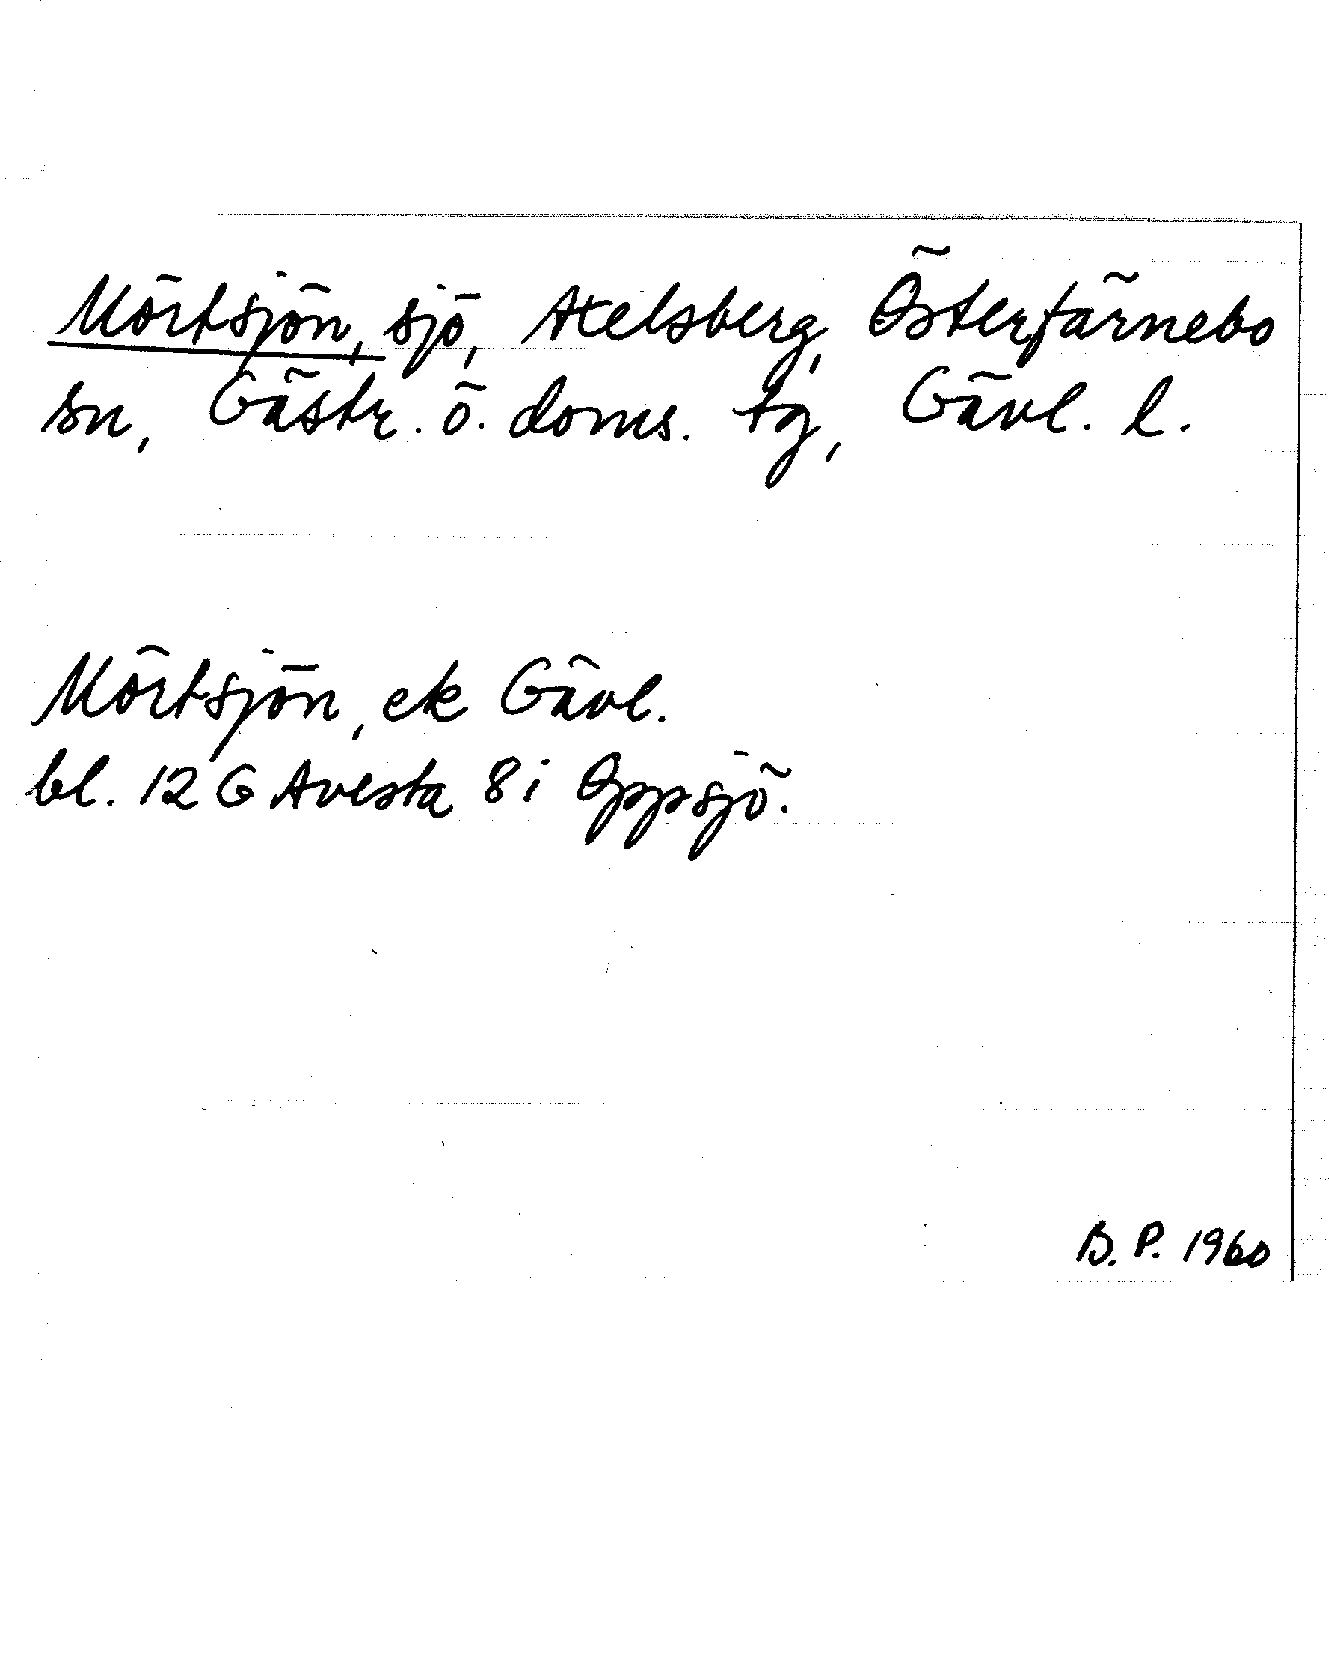 Mörtsjön, sjö, Axelsberg, Österfärnebo
sn, Gästr. ö. doms. tg, Gävl. l.
Mörtsjön, ek Gävl.
bl. 12 G Avesta 8 i Oppsjö.
B. P. 1960